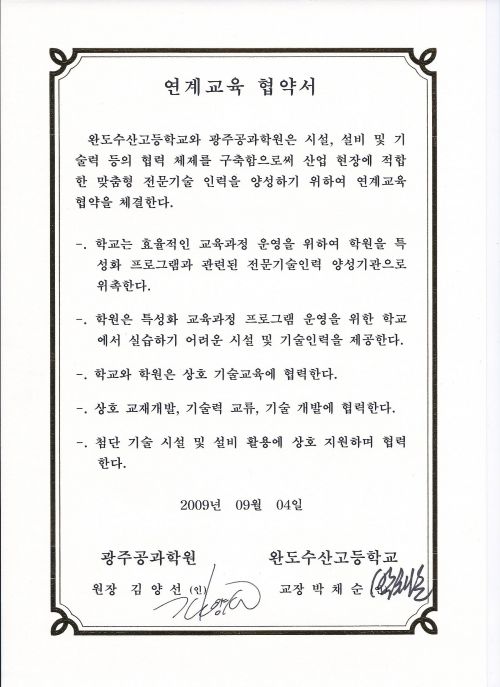 연계교육 협약서
완도수산고등학교와 광주공과학원은 시설, 설비 및 기
술력 등의 협력 체제를 구축함으로써 산업 현장에 적합
한 맞춤형 전문기술 인력을 양성하기 위하여 연계교육
협약을 체결한다.
-. 학교는 효율적인 교육과정 운영을 위하여 학원을 특
성화 프로그램과 관련된 전문기술인력 양성기관으로
위촉한다.
-. 학원은 특성화 교육과정 프로그램 운영을 위한 학교
에서 실습하기 어려운 시설 및 기술인력을 제공한다.
-. 학교와 학원은 상호 기술교육에 협력한다.
-. 상호 교재개발, 기술력 교류, 기술 개발에 협력한다.
-. 첨단 기술 시설 및 설비 활용에 상호 지원하며 협력
한다.
2009년 09월 04일
광주공과학원 완도수산고등학교
원장 김 양 선 (인) 교장 박 채 순